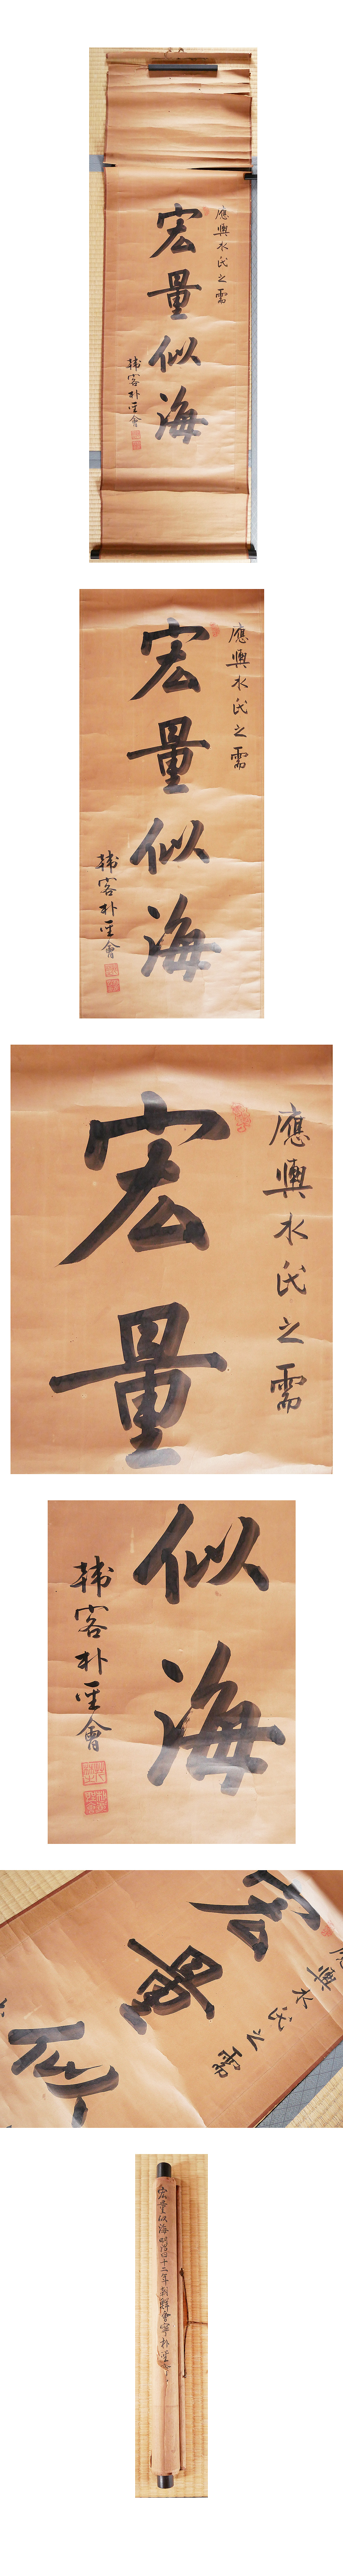 應輿水氏之需
宏量似海
韓客朴會
應輿水氏之需
宏量似海
韓客朴會
應輿水氏之需
宏量
似海
韓客朴會
輿水氏之需
宏量似
宏量似海 明治四十二年 朝鮮會寧 朴